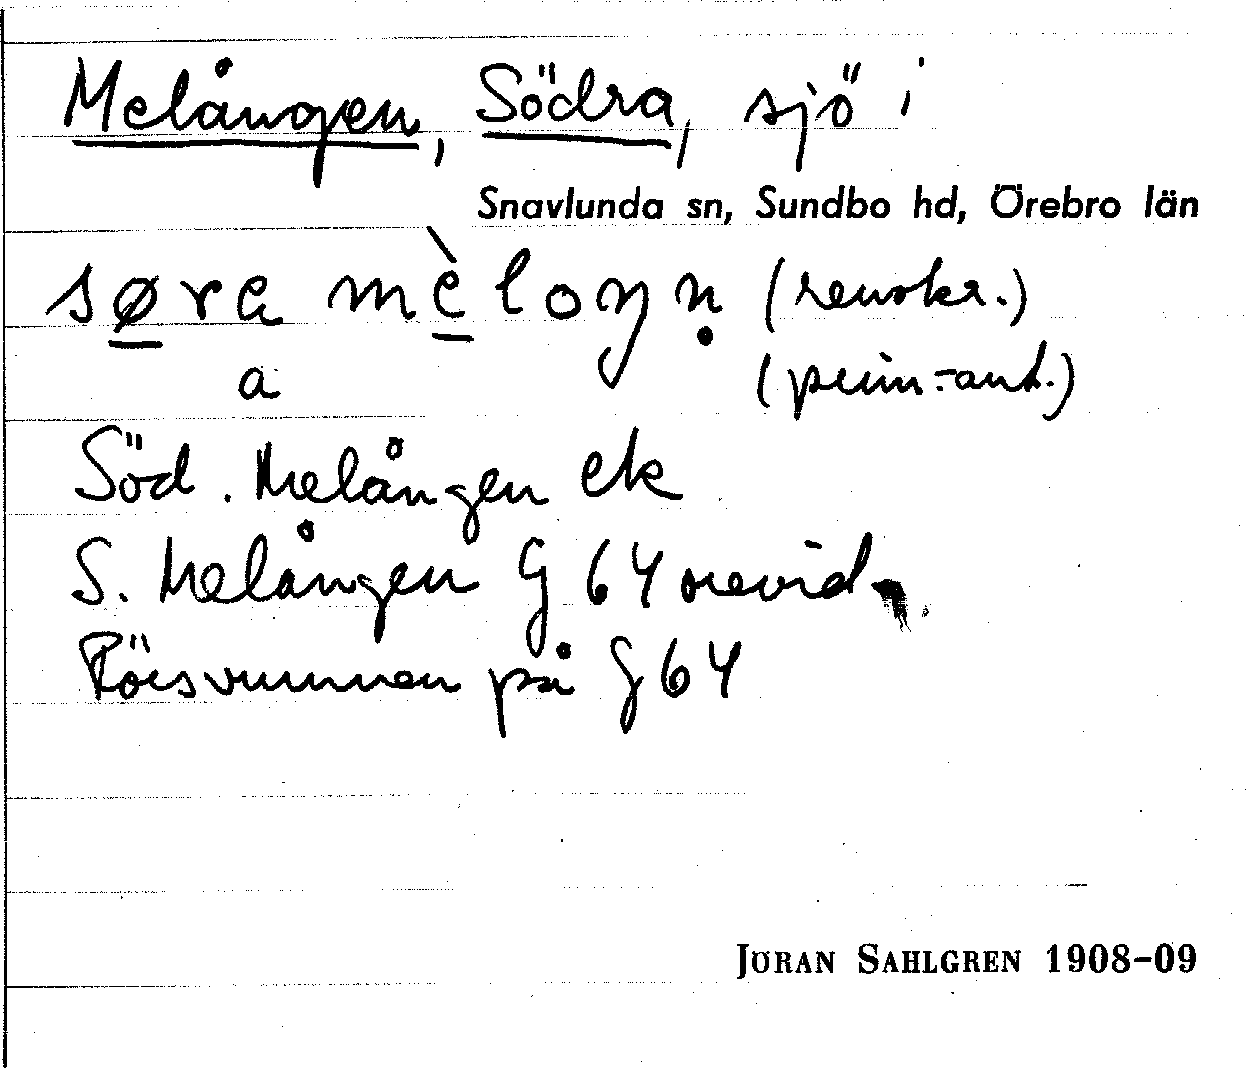 Melången, Södra, sjö i
Snavlunda sn, Sundbo hd, Örebro län
søra mèloŋṇ (renskr.)
a (prim.-ant.)
Söd. Melången ek
S. Melången G 64 orevid.
Rörsvunnen på G 64
JÖRAN SAHLGREN 1908-09